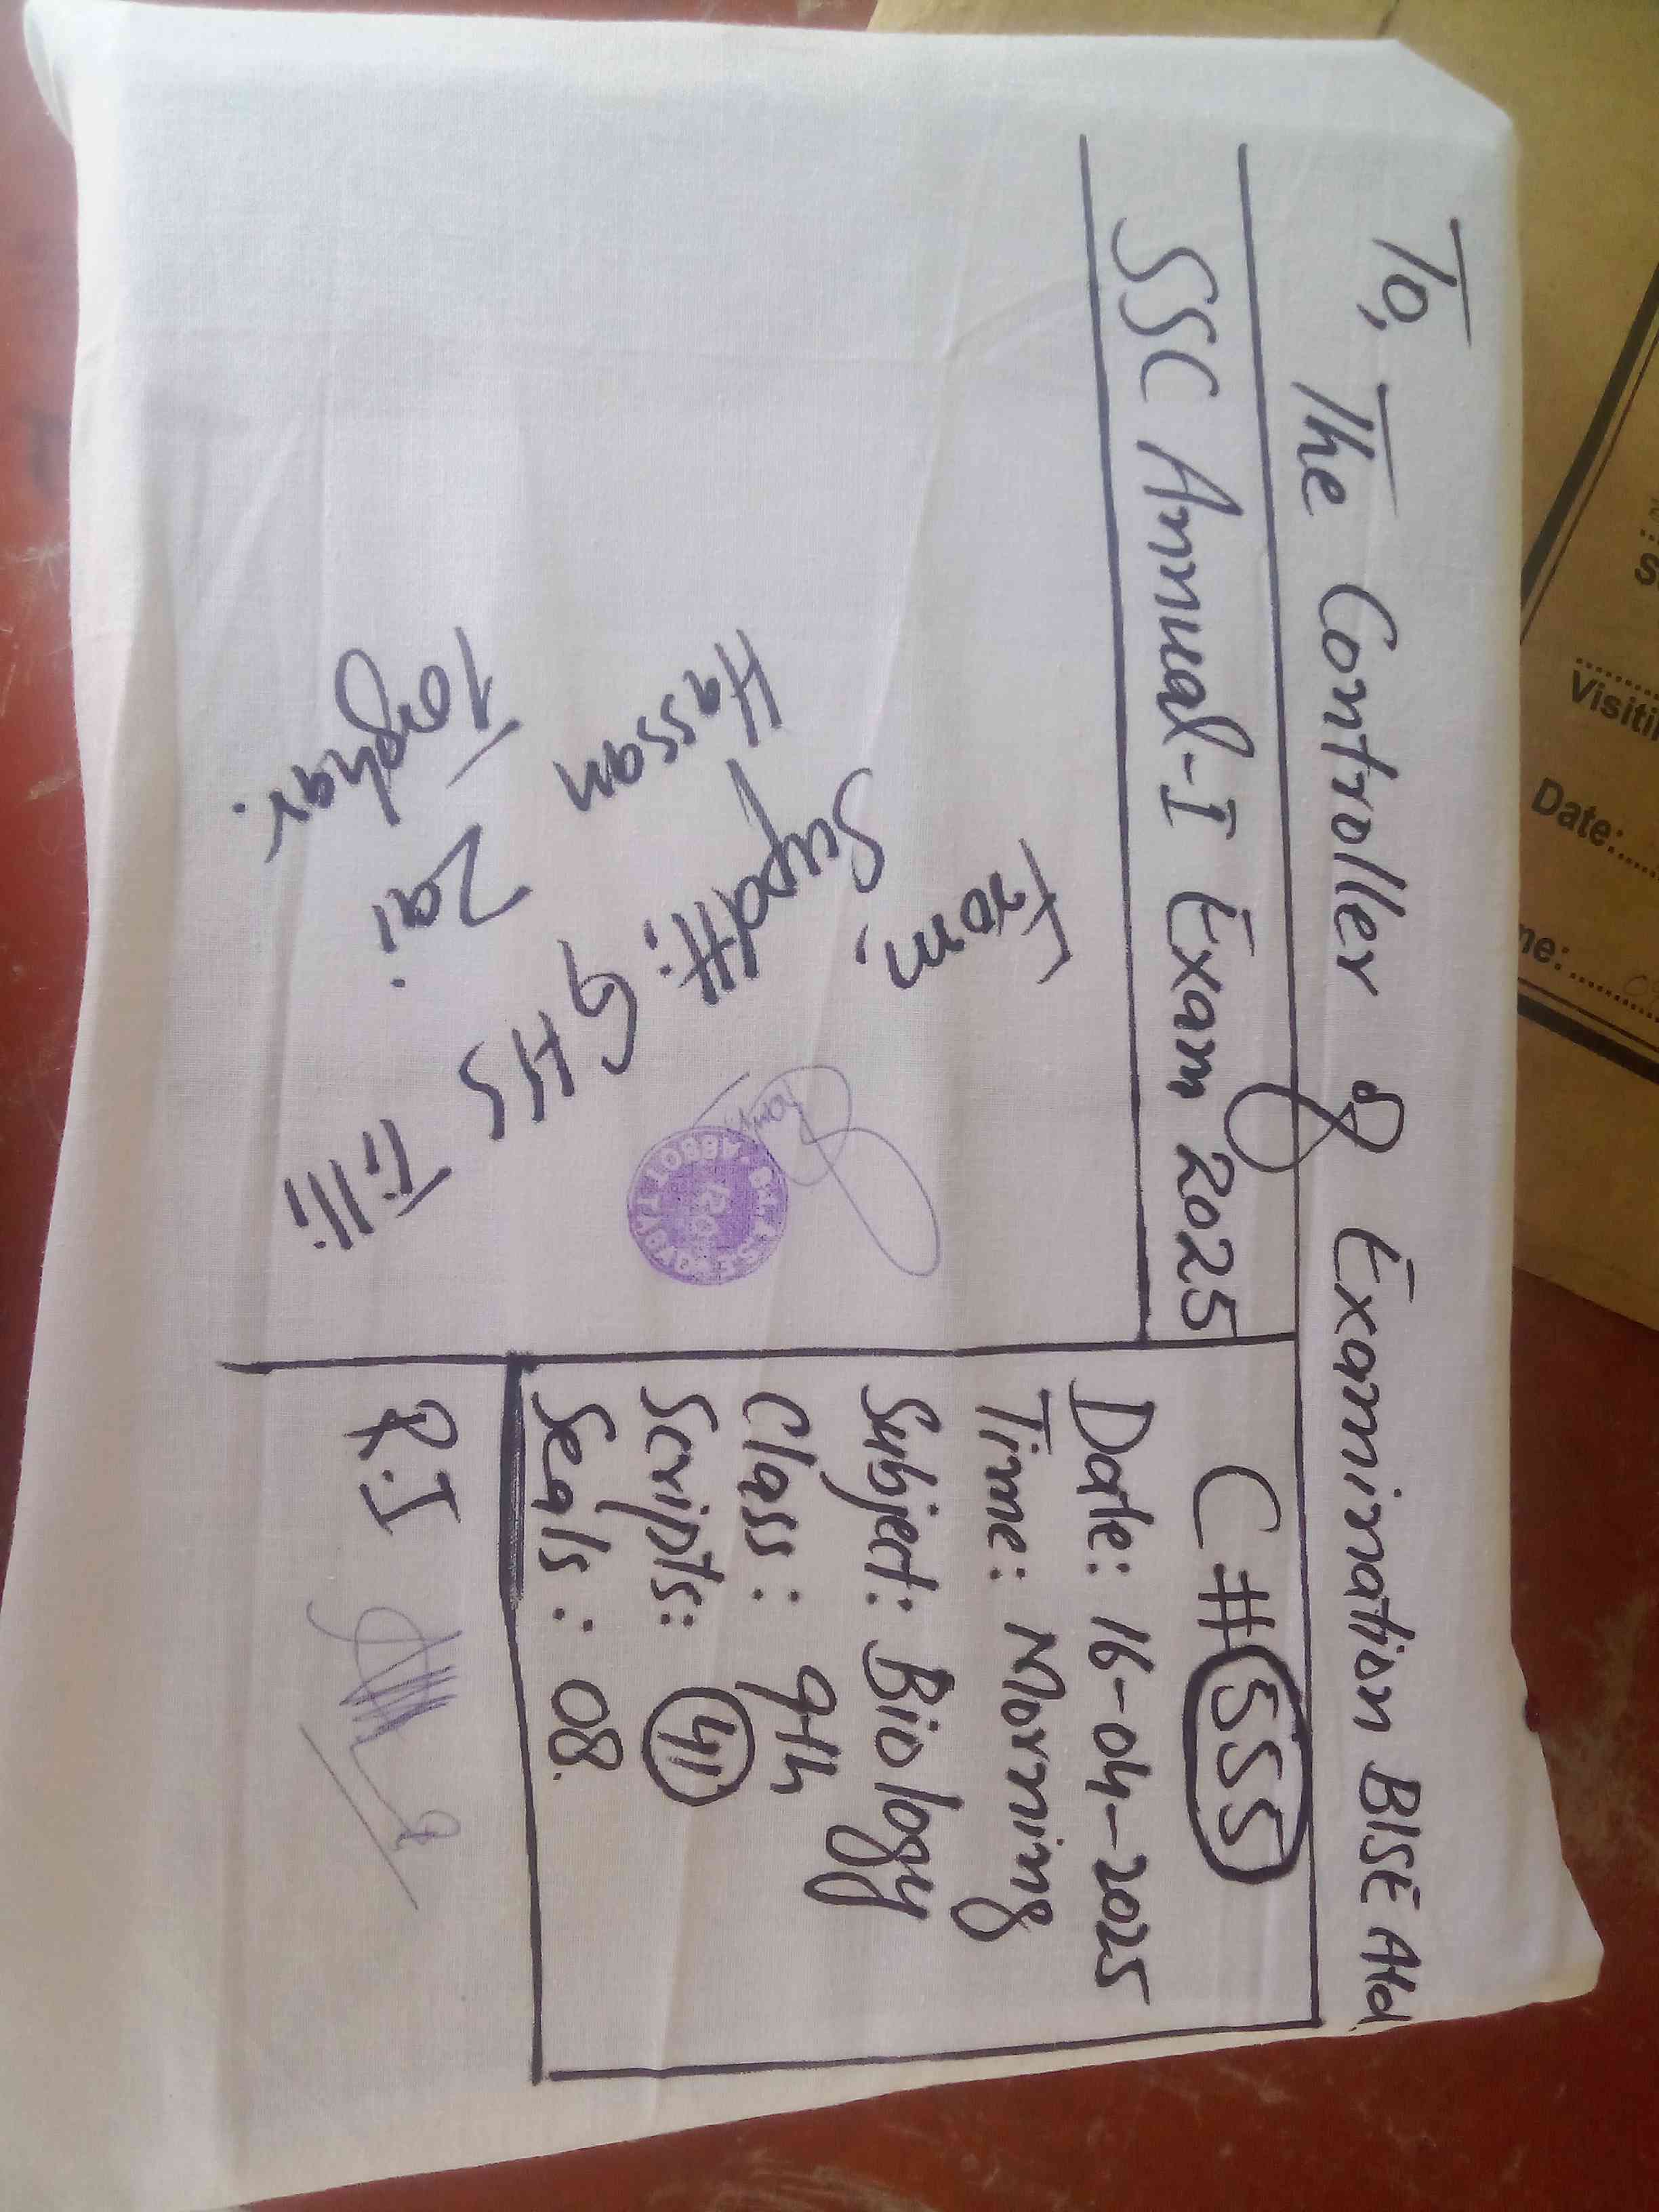 To, The Controller of Examination BISE Atd
SSC Annual-I Exam 2025
C # 555
Date: 16-04-2025
Time: Morning
Subject: Biology
Class: 9th
Scripts: 41
Seals: 08.
From:
Supdtt: GHS Tilli
Hassan Zai
Torghar.
R.I
ABBOTTABAD
Visiti
Date:
me: